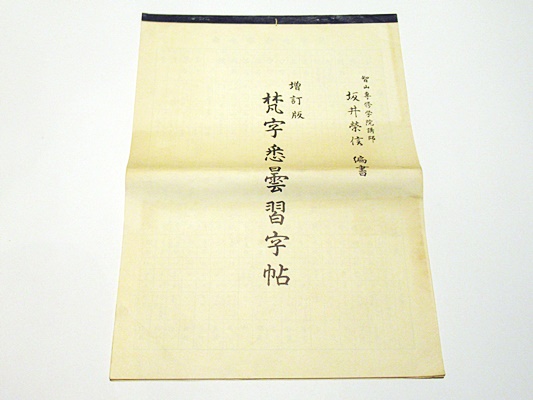 智山専修学院講師
坂井榮信 編書
增訂版
梵字悉曇習字帖